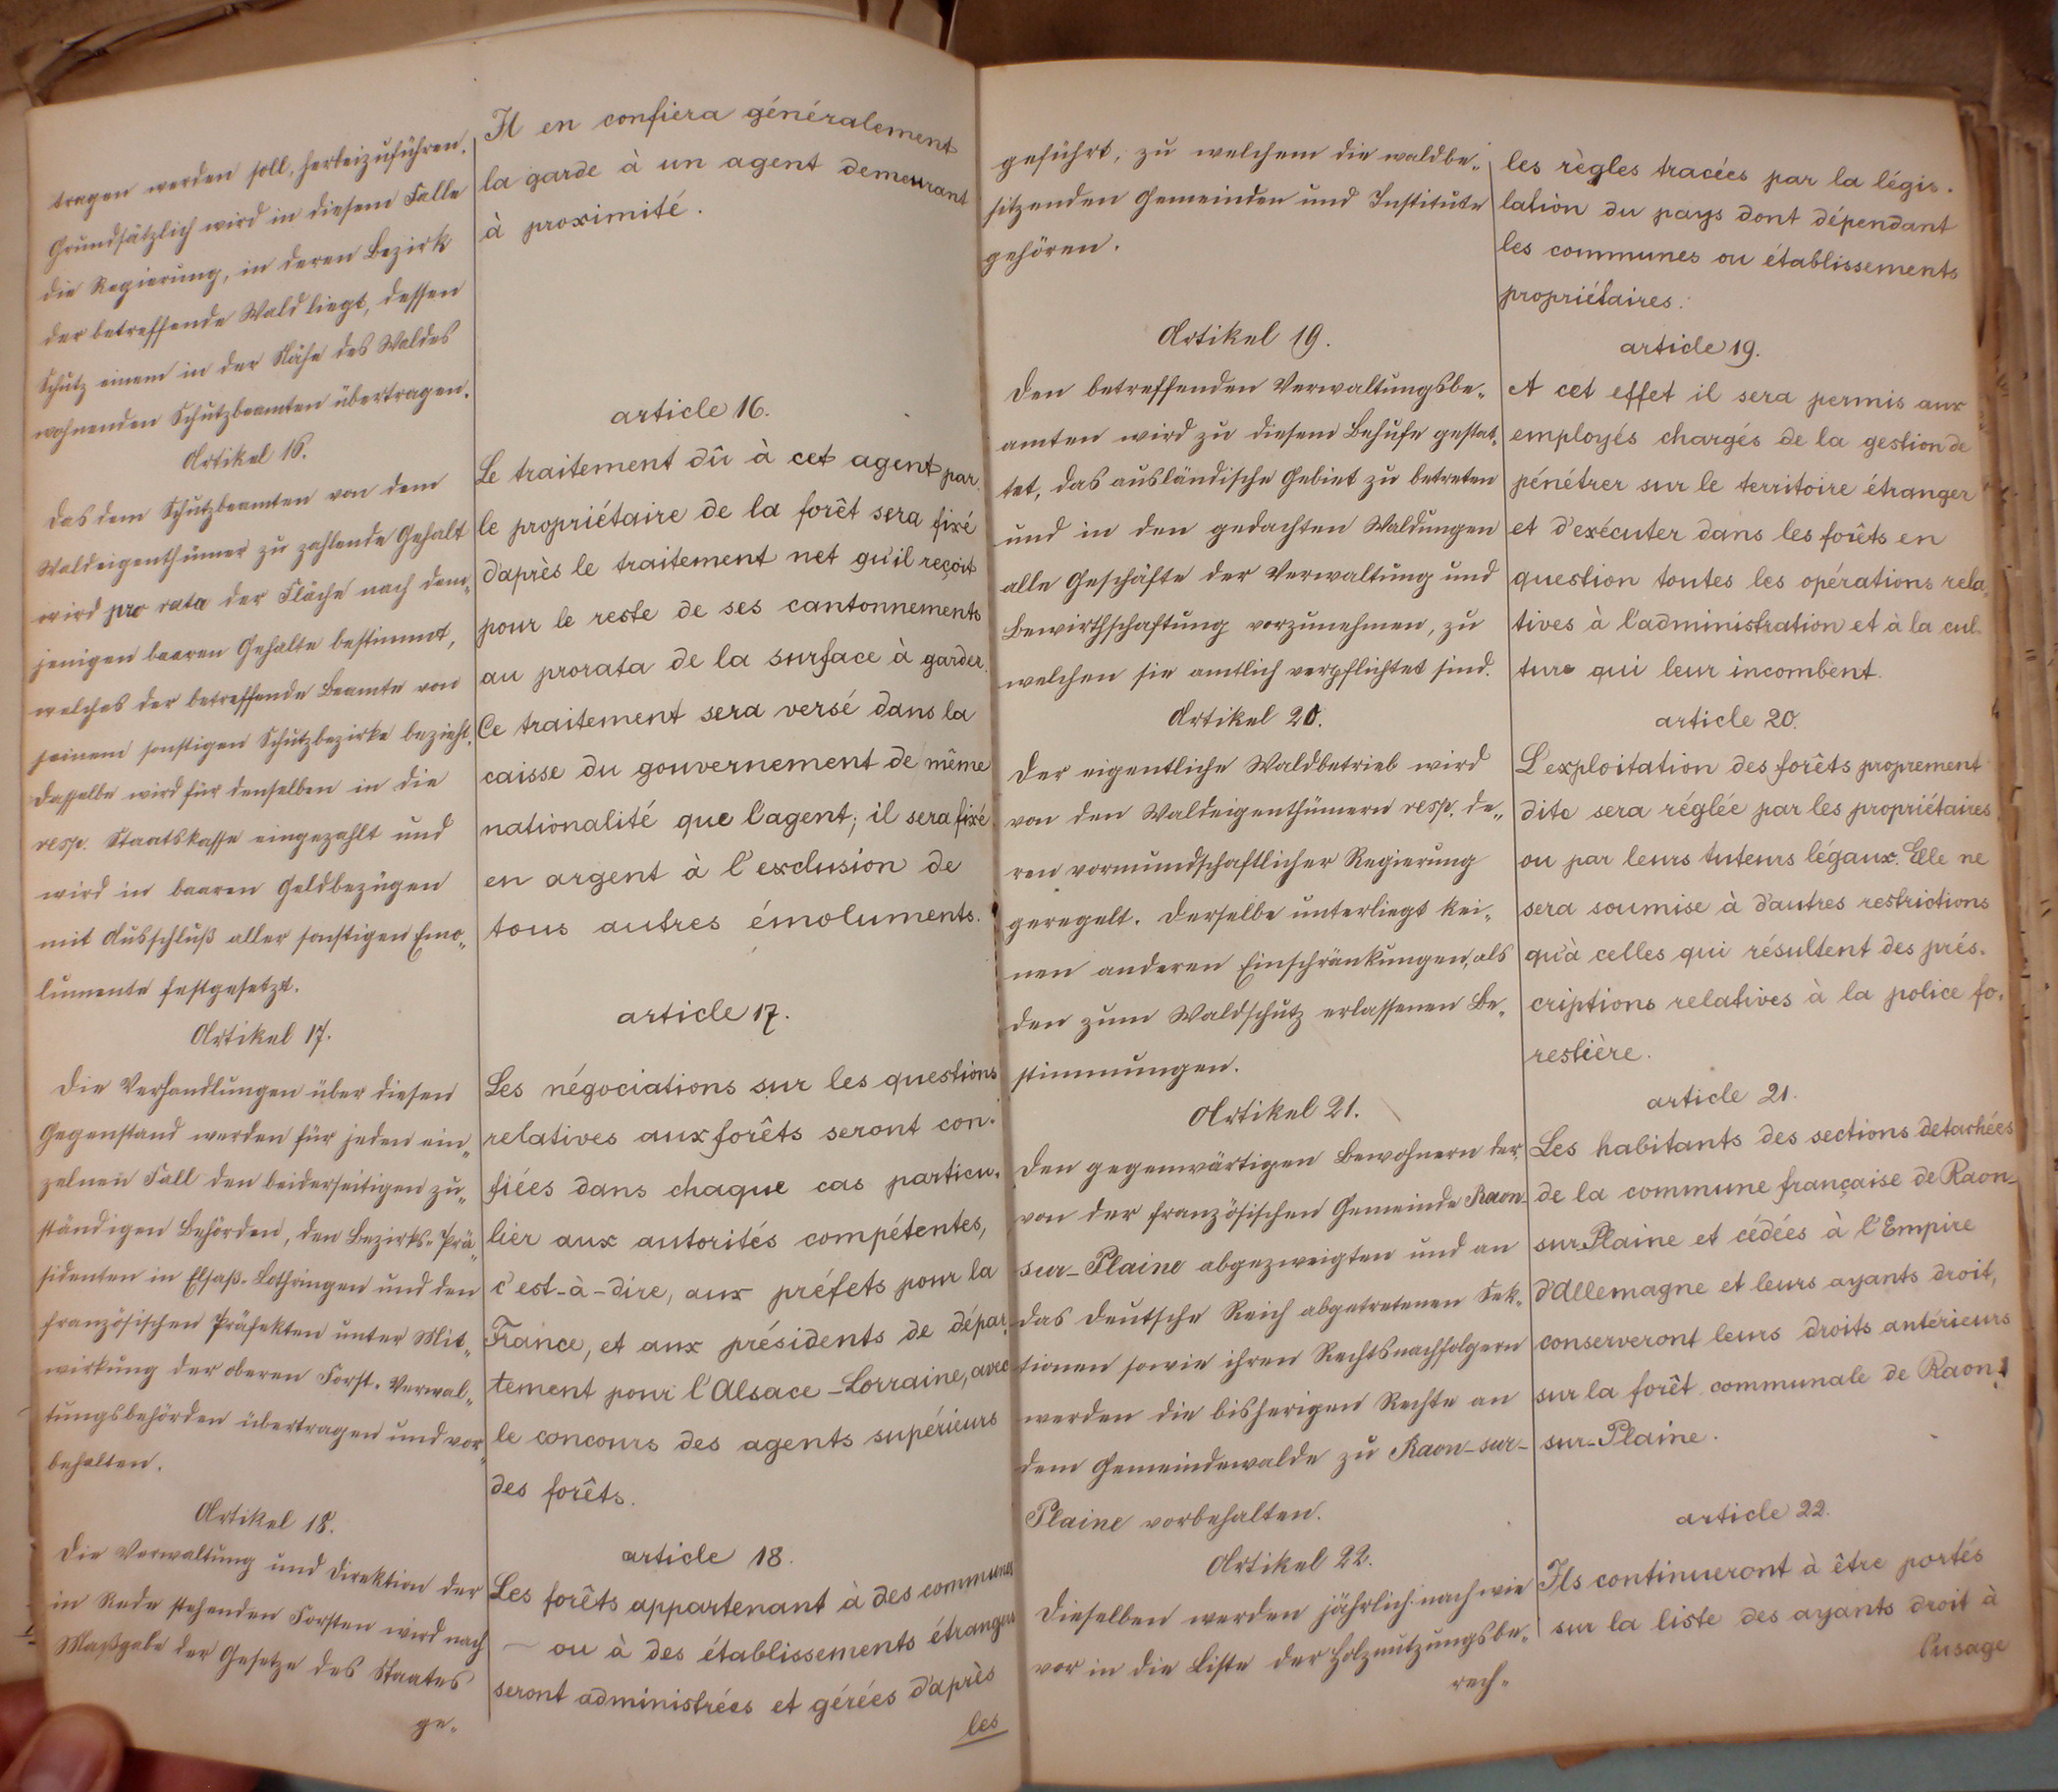 tragen werden soll, herbeizuführen.
Grundsätzlich wird in diesem Falle
die Regierung, in deren Bezirk
der betreffende Wald liegt, dessen
Schutz einem in der Nähe des Waldes
wohnenden Schutzbeamten übertragen.
Artikel 16.
Das dem Schutzbeamten von dem
Waldeigenthümer zu zahlende Gehalt
wird pro rata der Fläche nach dem„
jenigen baaren Gehalte bestimmt,
welches der betreffende Beamte von
seinem sonstigen Schutzbezirke bezieht.
Dasselbe wird für denselben in die
resp. Staatskasse eingezahlt und
wird in baaren Geldbezügen
mit Ausschluß aller sonstigen Emo„
lumente festgesetzt.
Artikel 17.
Die Verhandlungen über diesen
Gegenstand werden für jeden ein„
zelnen Fall den beiderseitigen zu„
ständigen Behörden, den Bezirks-Prä„
sidenten in Elsaß-Lothringen und den
französischen Präfekten unter Mit„
wirkung der oberen Forst-Verwal„
tungsbehörden übertragen und vor„
behalten.
Artikel 18.
Die Verwaltung und Direktion der
in Rede stehenden Forsten wird nach
Maßgabe der Gesetze des Staates
ge„
Il en confiera généralement
la garde à un agent demeurant
à proximité.
article 16.
Le traitement dû à cet agent par
le propriétaire de la forêt sera fixé
d'après le traitement net qu'il reçoit
pour le reste de ses cantonnements
au prorata de la surface à garder.
Ce traitement sera versé dans la
caisse du gouvernement de même
nationalité que l'agent; il sera fixé
en argent à l'exclusion de
tous autres émoluments.
article 17.
Les négociations sur les questions
relatives aux forêts seront con-
fiées dans chaque cas particu-
lier aux autorités compétentes,
c'est-à-dire, aux préfets pour la
France, et aux présidents de dépar-
tement pour l'Alsace-Lorraine, avec
le concours des agents supérieurs
des forêts.
article 18.
Les forêts appartenant à des communes
ou à des établissements étrangers
seront administrées et gérées d'après
les
geführt, zu welchem die waldbe„
sitzenden Gemeinden und Institute
gehören.
Artikel 19.
Den betreffenden Verwaltungsbe„
amten wird zu diesem Behufe gestat„
tet, das ausländische Gebiet zu betreten
und in den gedachten Waldungen
alle Geschäfte der Verwaltung und
Bewirthschaftung vorzunehmen, zu
welchen sie amtlich verpflichtet sind.
Artikel 20.
Der eigentliche Waldbetrieb wird
von den Waldeigenthümern resp. de„
ren vormundschaftlicher Regierung
geregelt. Derselbe unterliegt kei„
nen anderen Einschränkungen, als
den zum Waldschutz erlassenen Be„
stimmungen.
Artikel 21.
Den gegenwärtigen Bewohnern der
von der französischen Gemeinde Raon
sur-Plaine abgezweigten und an
das Deutsche Reich abgetretenen Sek„
tionen sowie ihren Rechtsnachfolgern
werden die bisherigen Rechte an
dem Gemeindewalde zu Raon-sur-
Plaine vorbehalten.
Artikel 22.
Dieselben werden jährlich nach wie
vor in die Liste der Holznutzungsbe„
rech„
les règles tracées par la légis-
lation du pays dont dépendant
les communes ou établissements
propriétaires.
article 19.
A cet effet il sera permis aux
employés chargés de la gestion de
pénétrer sur le territoire étranger
et d'exécuter dans les forêts en
question toutes les opérations rela-
tives à l'administration et à la cul-
ture qui leur incombent.
article 20.
L'exploitation des forêts proprement
dite sera réglée par les propriétaires
ou par leurs tuteurs légaux. Elle ne
sera soumise à d'autres restrictions
qu'à celles qui résultent des prés-
criptions relatives à la police fo-
restière.
article 21.
Les habitants des sections detachées
de la commune française de Raon-
sur-Plaine et cédées à l'Empire
d'Allemagne et leurs ayants droit,
conserveront leurs droits antérieurs
sur la forêt communale de Raon-
sur-Plaine.
article 22.
Ils continueront à être portés
sur la liste des ayants droit à
l'usage